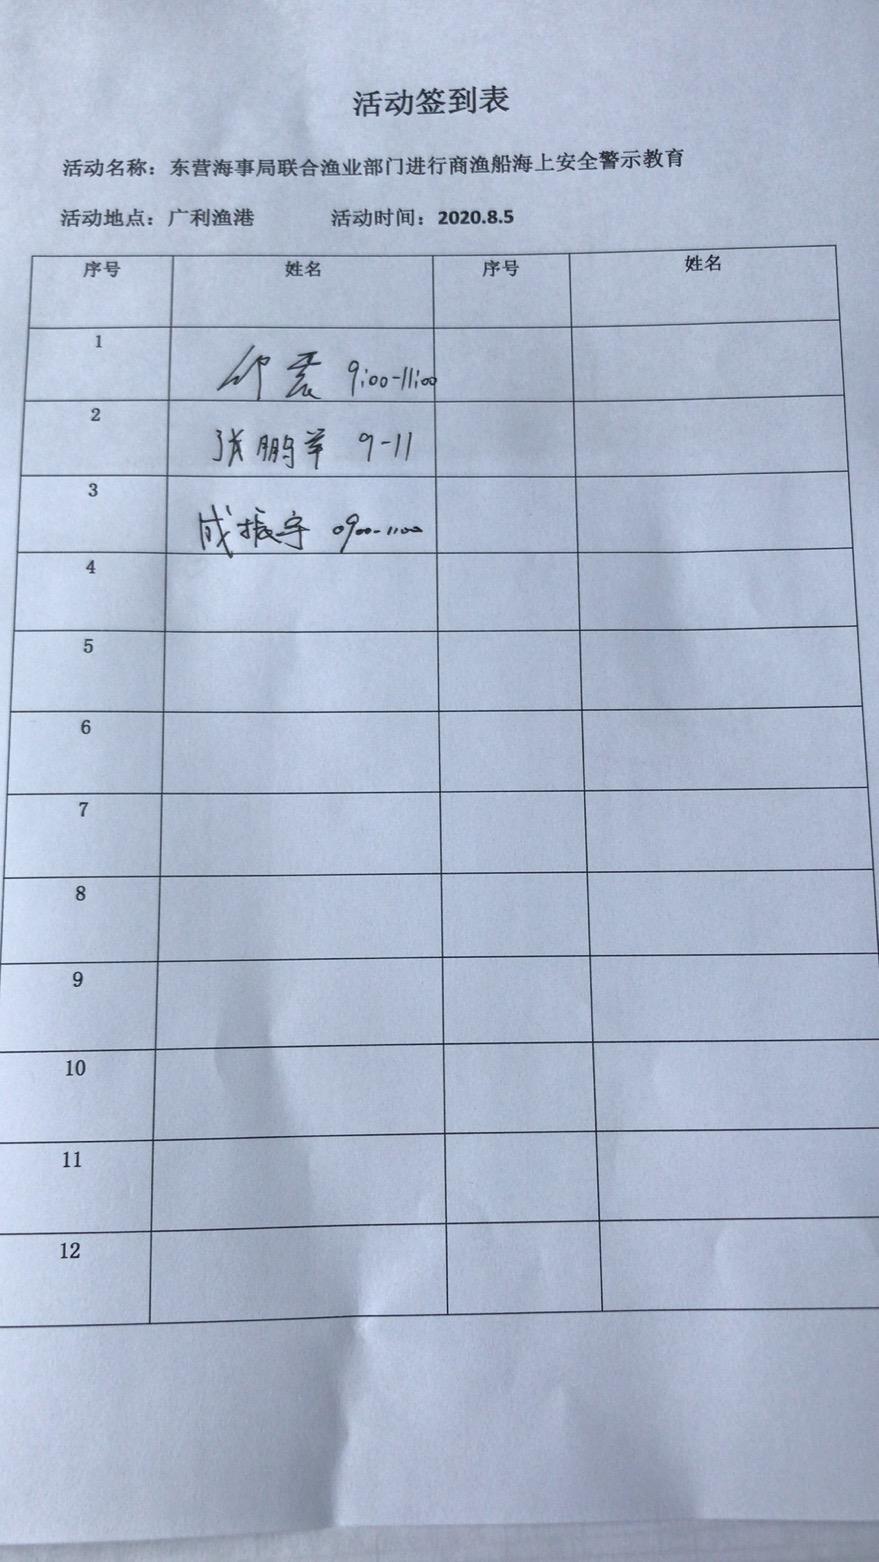 活动签到表
活动名称：东营海事局联合渔业部门进行商渔船海上安全警示教育
活动地点：广利渔港 活动时间：2020.8.5
序号 姓名 序号 姓名
1 9:00-11:00
2 张鹏 9-11
3 成振宇 0900-1100
4
5
6
7
8
9
10
11
12